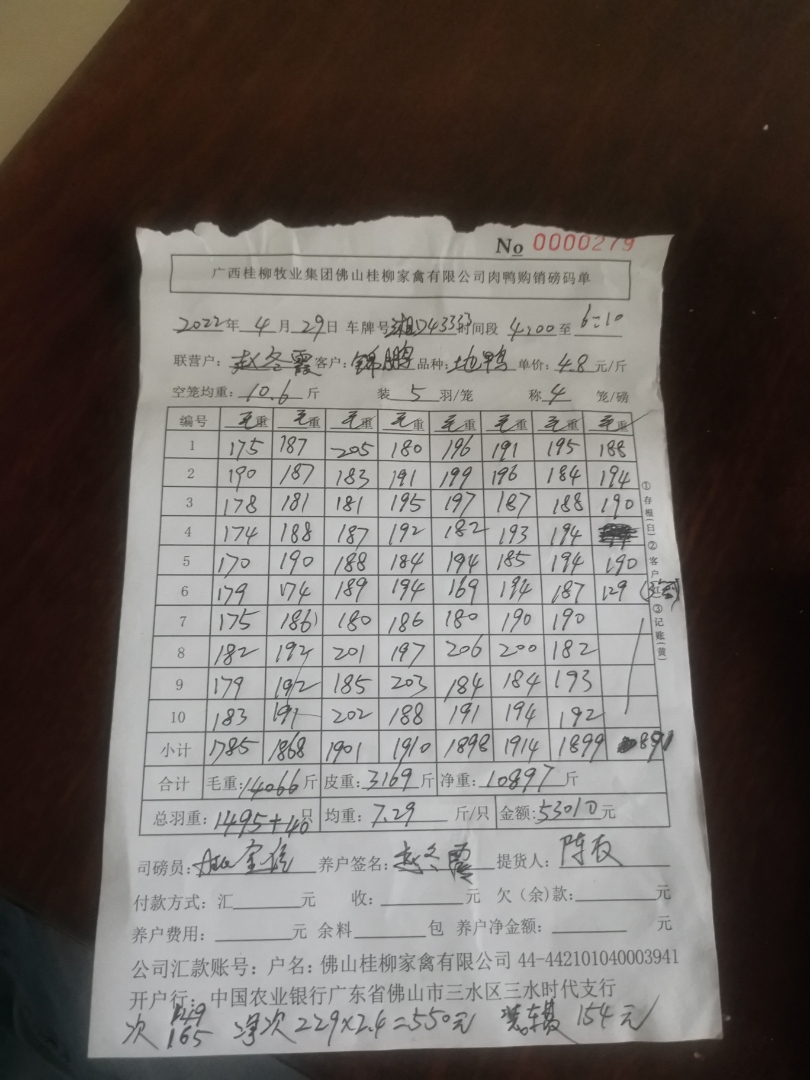 No 0000279
广西桂柳牧业集团佛山桂柳家禽有限公司肉鸭购销磅码单
2022年 4月 29日 车牌号 湘D43353 时间段 4:00 至 6:10
联营户: 赵冬霞 客户: 锦鹏 品种: 地鸭 单价: 4.8 元/斤
空笼均重: 10.6 斤 装 5 羽/笼 称 4 笼/磅
编号 毛重 毛重 毛重 毛重 毛重 毛重 毛重 毛重
1 175 187 205 180 196 191 195 188
2 190 187 183 191 199 196 184 194
3 178 181 181 195 197 187 188 190
4 174 188 187 192 182 193 194
5 170 190 188 184 194 185 194 190
6 179 174 189 194 169 194 187 129
7 175 186 180 186 180 190 190
8 182 192 201 197 206 200 182
9 179 192 185 203 184 184 193
10 183 191 202 188 191 194 192
小计 1785 1868 1901 1910 1898 1914 1899 891
合计 毛重: 14066 斤 皮重: 3169 斤 净重: 10897 斤
总羽重: 1495+40 只 均重: 7.29 斤/只 金额: 53010 元
①存根(白)②客户(红)③记账(黄)
司磅员: 养户签名: 赵冬霞 提货人: 陈友
付款方式: 汇 元 收: 元 欠(余)款: 元
养户费用: 元 余料 包 养户净金额: 元
公司汇款账号: 户名: 佛山桂柳家禽有限公司 44-442101040003941
开户行: 中国农业银行广东省佛山市三水区三水时代支行
次 165 净次 229×2.4=550元 154元